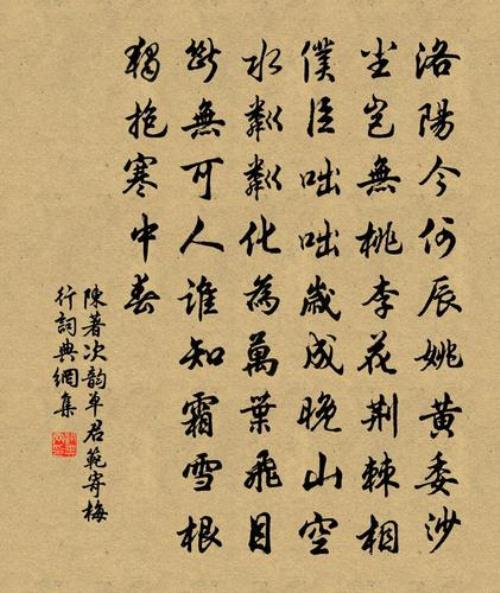 洛陽今何辰姚黃委沙
尘豈無桃李花荆棘相
僕臣咄咄歲成晚山空
水粼粼化為萬葉飛目
斷無可人誰知霜雪根
獨抱寒中春
陳著次韵單君範寄梅
行詞典網集